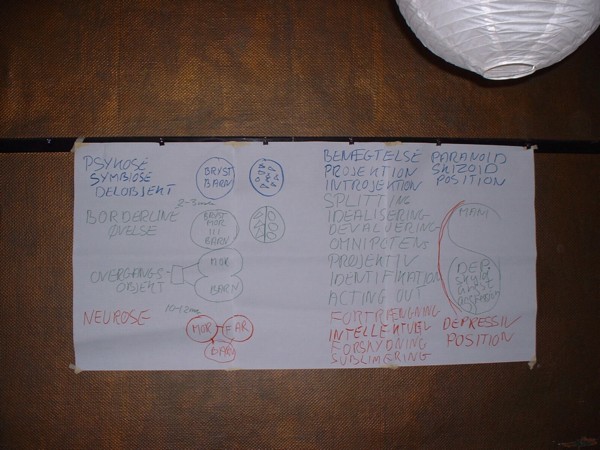 PSYKOSE
SYMBIOSE
DELOBJEKT
BRYST
BARN
BORDERLINE
ØVELSE
BRYST
MOR
BARN
OVERGANGS
OBJEKT
MOR
BARN
NEUROSE
MOR
FAR
BARN
BENÆGTELSE
PROJEKTION
INTROJEKTION
SPLITTING
IDEALISERING
DEVALUERING
OMNIPOTENS
PROJEKTIV
IDENTIFIKATION
ACTING OUT
FORTRÆNGNING
INTELLEKTUEL
FORSKYDNING
SUBLIMERING
PARANOID
SKIZOID
POSITION
DEP.
skyld
angst
DEPRESSIV
POSITION